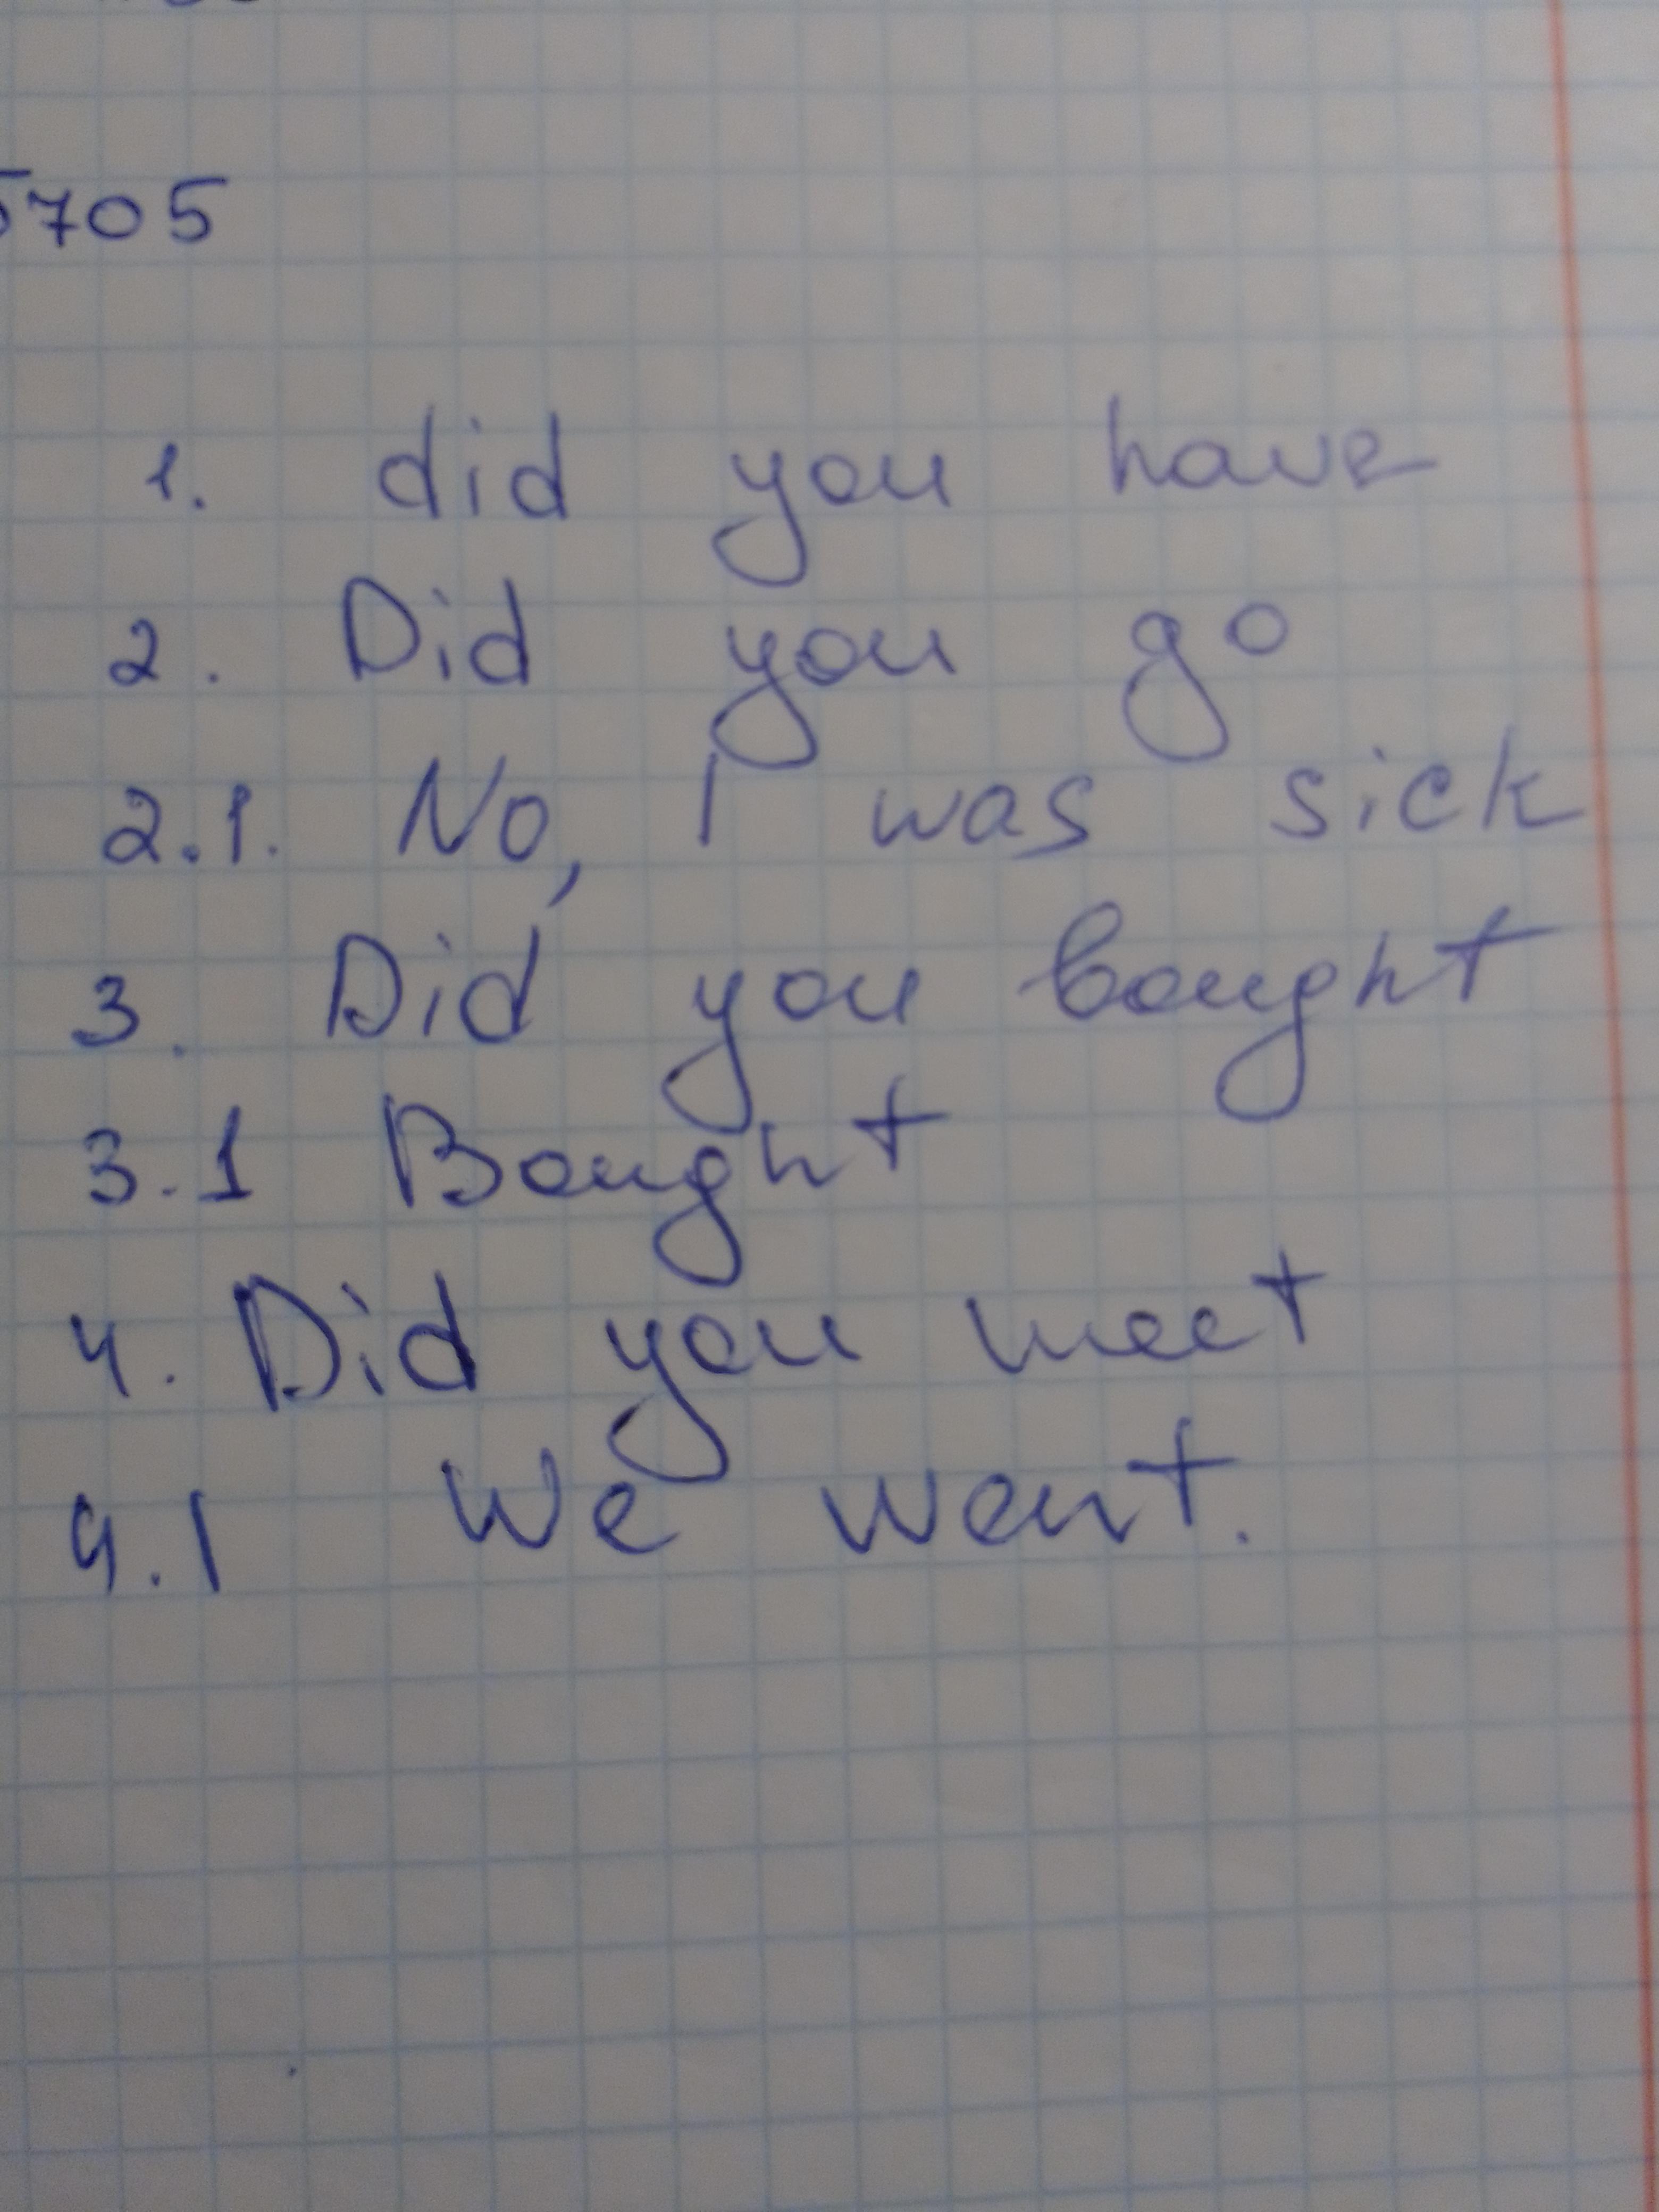 5705
1. did you have
2. Did you go
2.1. No, I was sick
3. Did you bought
3.1 Bought
4. Did you meet
4.1 We went.